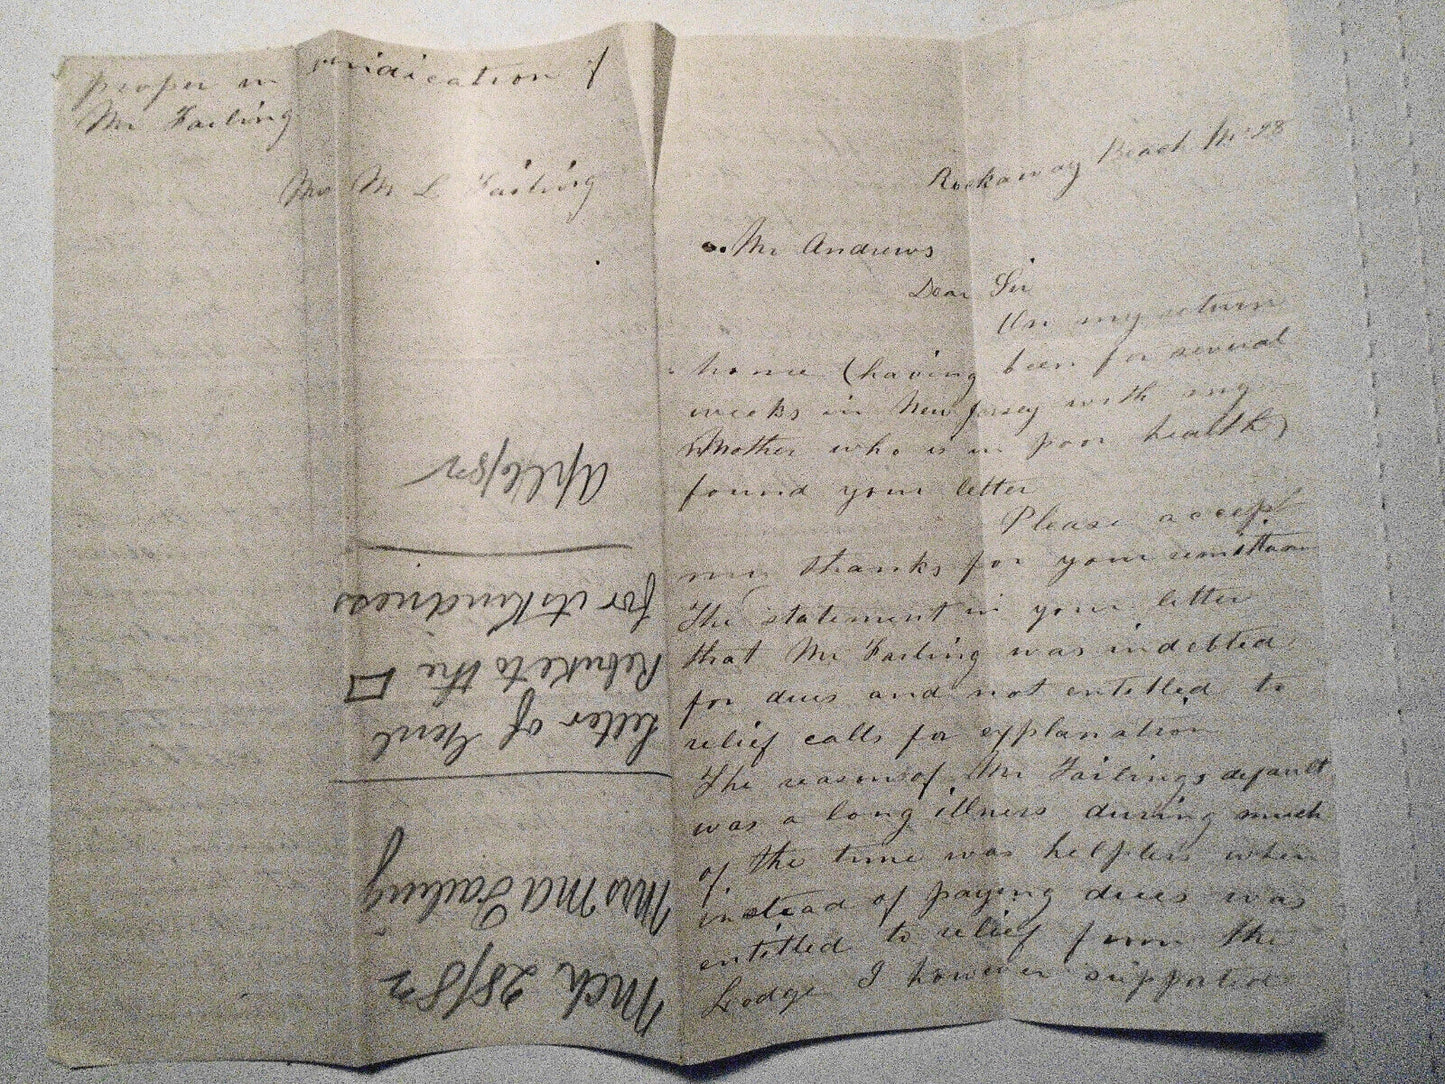 proper in vindication of
Mr Failing
Mrs M L Failing
Rockaway Beach Mr 28
Mr Andrews
Dear Sir
On my return
home (having been for several
weeks in New Jersey with my
Mother who is in poor health)
found your letter
Please accept
my thanks for your remittance
The statement in your letter
that Mr Failing was indebted
for dues and not entitled to
relief calls for explanation
The reason of Mr Failings default
was a long illness during much
of the time was helpless when
instead of paying dues was
entitled to relief from the
Lodge I however supported
Mch 28/82
Mrs M A Failing
Letter of Genl
Rebuke to the
for its Kindness
Apl 6/82